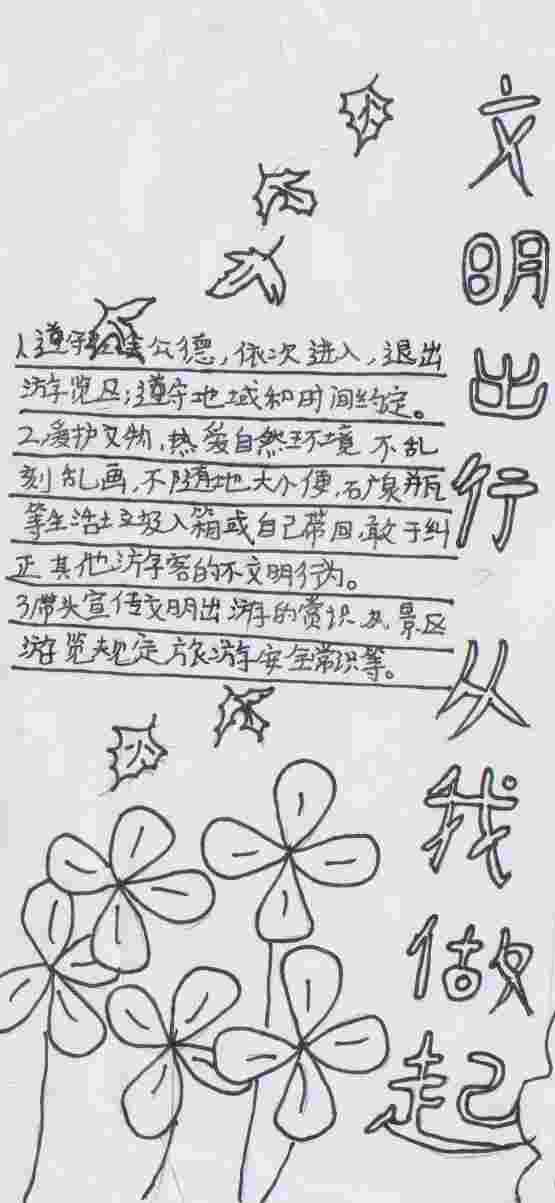 文明出行
从我做起
1、遵守社会公德,依次进入,退出
游览区,遵守地域和时间约定。
2、爱护文物,热爱自然环境 不乱
刻乱画,不随地大小便,矿泉瓶
等生活垃圾入箱或自己带回,敢于纠
正其他游客的不文明行为。
3、带头宣传文明出游的常识 风景区
游览规定 旅游安全常识等。